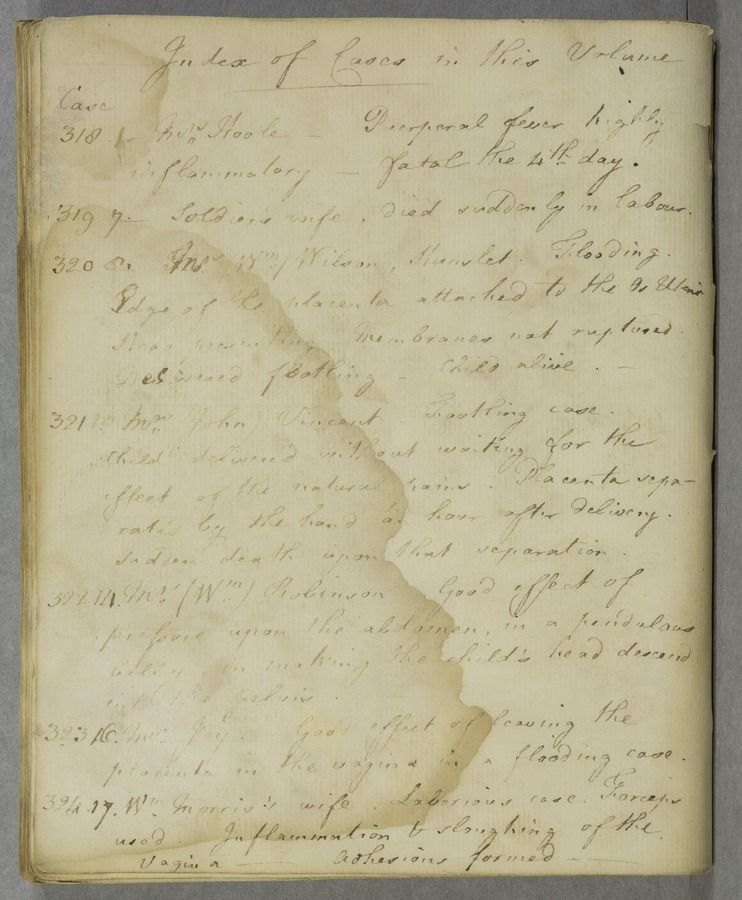 Index of Cases in this Volume
Case
318 1. Mrs Hoole — Puerperal fever highly
inflammatory — fatal the 4th day.
319 7. Soldier's wife. Died suddenly in labour.
320 8. Mrs (Wm) Wilson, Hunslet. Flooding.
Edge of the placenta attached to the Os Uteri
presenting Membranes not ruptured.
Delivered footling — Child alive. —
321 Mrs (John) Vincent. Footling case.
Child delivered without waiting for the
effect of the natural pains. Placenta sepa-
rated by the hand an hour after delivery.
Sudden death upon that separation.
322 14. Mrs (Wm) Robinson Good effect of
pressure upon the abdomen, in a pendulous
belly, in making the child's head descend
into the pelvis.
323 16. Mrs Good effect of leaving the
placenta in the vagina in a flooding case.
324. 17. Wm Morris's wife. Laborious case. Forceps
used. Inflammation & sloughing of the
vagina — Adhesions formed —